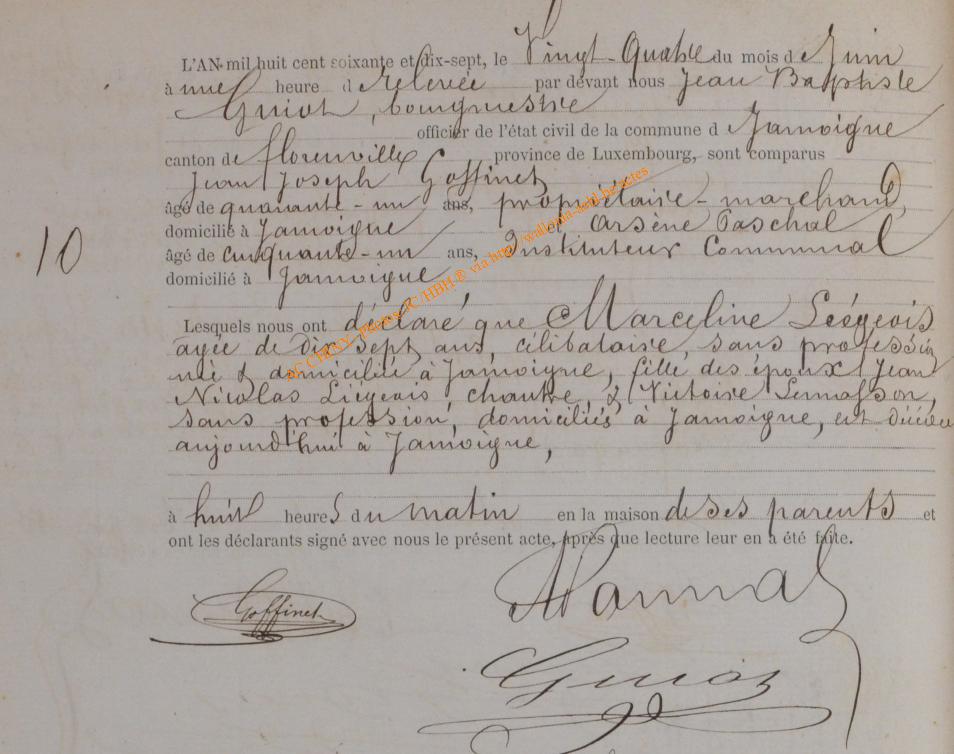 L'AN mil huit cent soixante et dix-sept, le Vingt-Quatre du mois de Juin
à une heure de relevée par devant nous Jean Baptiste
Guiot, bourgmestre
officier de l'état civil de la commune d Jamoigne
canton de florenville, province de Luxembourg, sont comparus
Jean Joseph Goffinet
âgé de quarante-un ans, propriétaire-marchand,
domicilié à Jamoigne et Arsène Paschal
âgé de cinquante-un ans, Instituteur Communal
10
domicilié à Jamoigne
Lesquels nous ont déclaré que Marceline Liégeois
agée de dix sept ans, célibataire, sans profession
née & domiciliée à Jamoigne, fille des époux Jean
Nicolas Liégeois, chantre, & Victoire Lemasson,
sans profession, domiciliés à Jamoigne, est décédée
aujourd'hui à Jamoigne,
à huit heures du matin en la maison de ses parents et
ont les déclarants signé avec nous le présent acte, après que lecture leur en a été faite.
Goffinet
Guiot